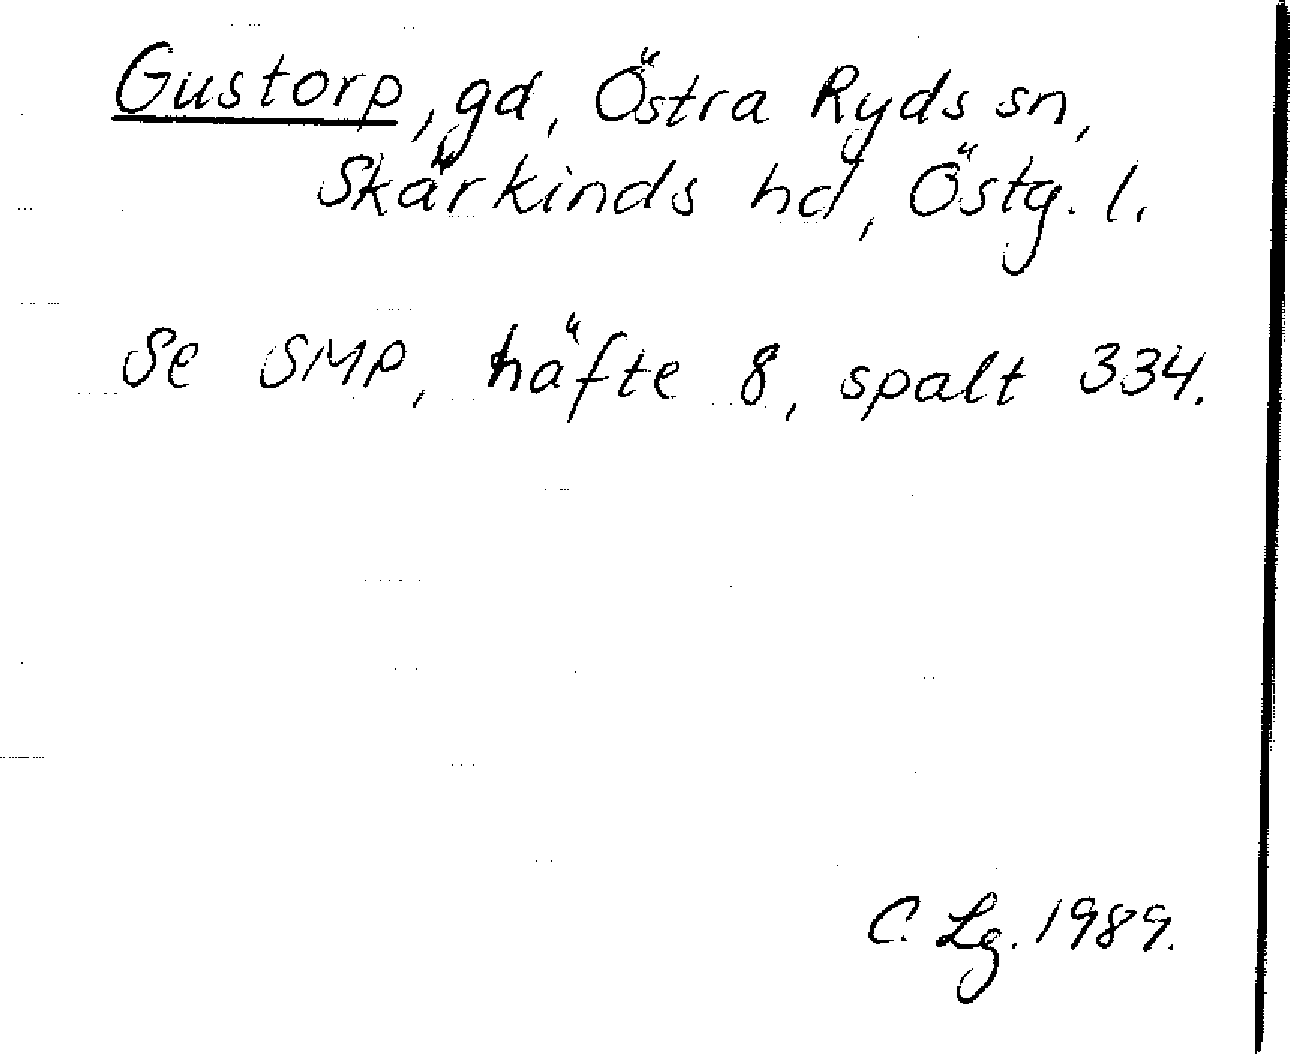 Gustorp, gd, Östra Ryds sn,
Skärkinds hd, Östg. l.
Se SMP, häfte 8, spalt 334.
C. Lg. 1989.